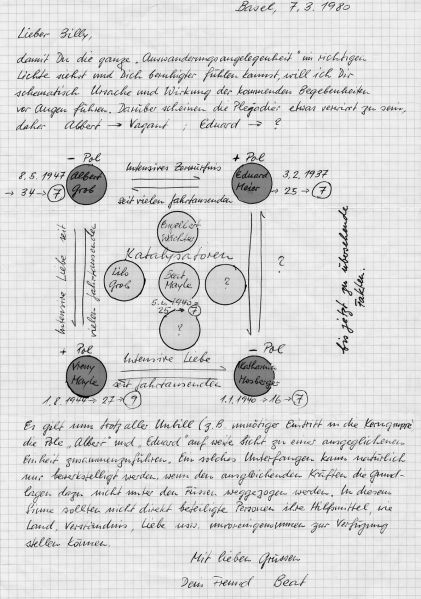 Basel, 7.3.1980
Lieber Billy,
damit Du die ganze „Auswanderungsangelegenheit" im richtigen
Lichte siehst und Dich beruhigter fühlen kannst, will ich Dir
schematisch Ursache und Wirkung der kommenden Begebenheiten
vor Augen führen. Darüber scheinen die Plejadier etwas verwirrt zu sein,
daher Albert → Vagant ; Eduard → ?
- Pol
+ Pol
8.5.1947
Albert
Grob
→ 34 → 7
Intensives Zerwürfnis
seit vielen Jahrtausenden
Eduard
Meier
3.2.1937
→ 25 → 7
Engelbert
Wächter
Katalysatoren
Lilo
Grob
Beat
Mayle
?
25 → 7
?
Intensive Liebe seit
vielen Jahrtausenden
?
bis jetzt zu übersehende
Fakten.
+ Pol
- Pol
Vreny
Mayle
1.8.1944 → 27 → 9
Intensive Liebe
seit Jahrtausenden
Mosberger
1.1.1940 → 16 → 7
Es gilt nun trotz aller Unbill (z.B. unnötiger Eintritt in die Kerngruppe
die Pole „Albert" und „Eduard" auf weite Sicht zu einer ausgeglichenen
Einheit zusammenzuführen. Ein solches Unterfangen kann natürlich
nur bewerkstelligt werden, wenn den ausgleichenden Kräften die Grund-
lagen dazu nicht unter den Füssen weggezogen werden. In diesem
Sinne sollten nicht direkt beteiligte Personen ihre Hilfsmittel, wie
Land, Verständnis, Liebe usw. unvoreingenommen zur Verfügung
stellen können.
Mit lieben Grüssen
Dein Freund Beat